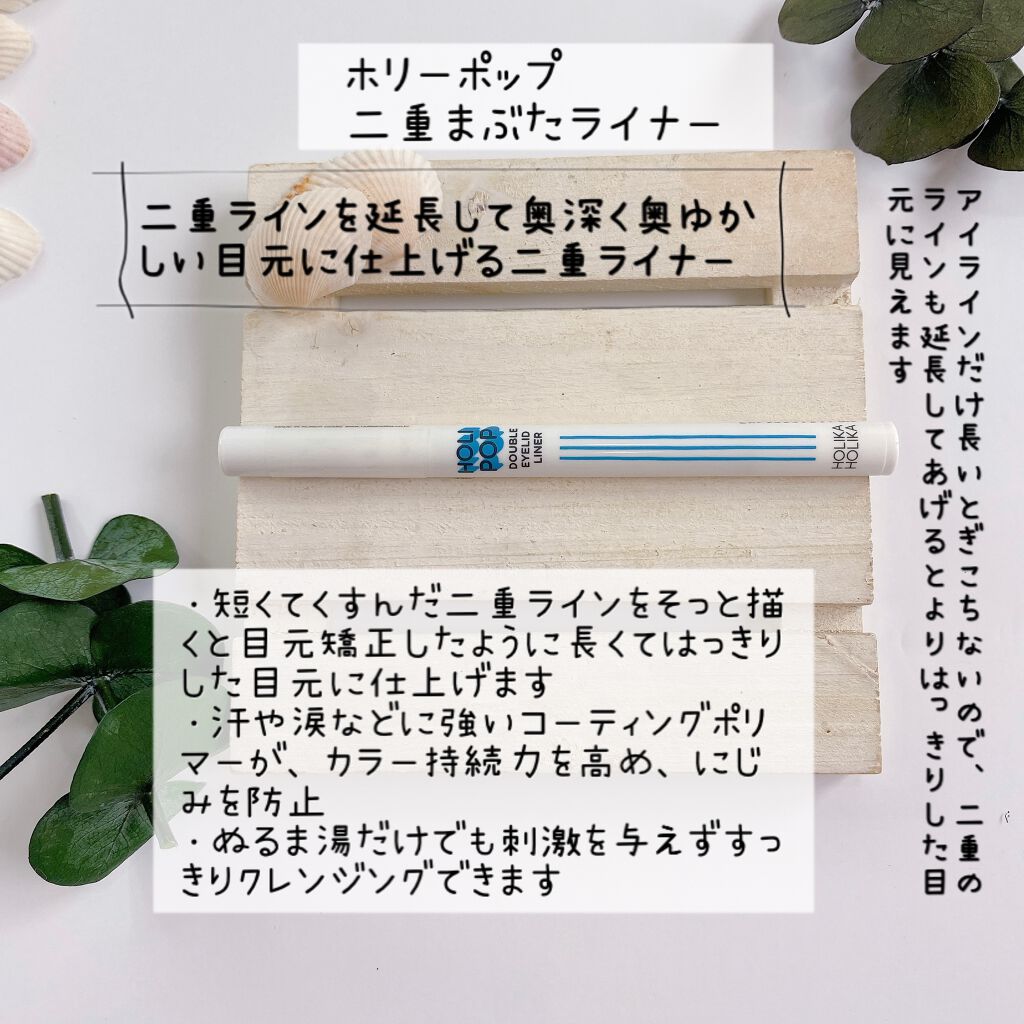 ホリーポップ
二重まぶたライナー
二重ラインを延長して奥深く奥ゆか
しい目元に仕上げる二重ライナー
アイラインだけ長いとぎこちないので、二重の
ラインも延長してあげるとよりはっきりした目
元に見えます
HOLI
POP
DOUBLE
EYELID
LINER
HOLIKA
HOLIKA
・短くてくすんだ二重ラインをそっと描
くと目元矯正したように長くてはっきり
した目元に仕上げます
・汗や涙などに強いコーティングポリ
マーが、カラー持続力を高め、にじ
みを防止
・ぬるま湯だけでも刺激を与えずすっ
きりクレンジングできます